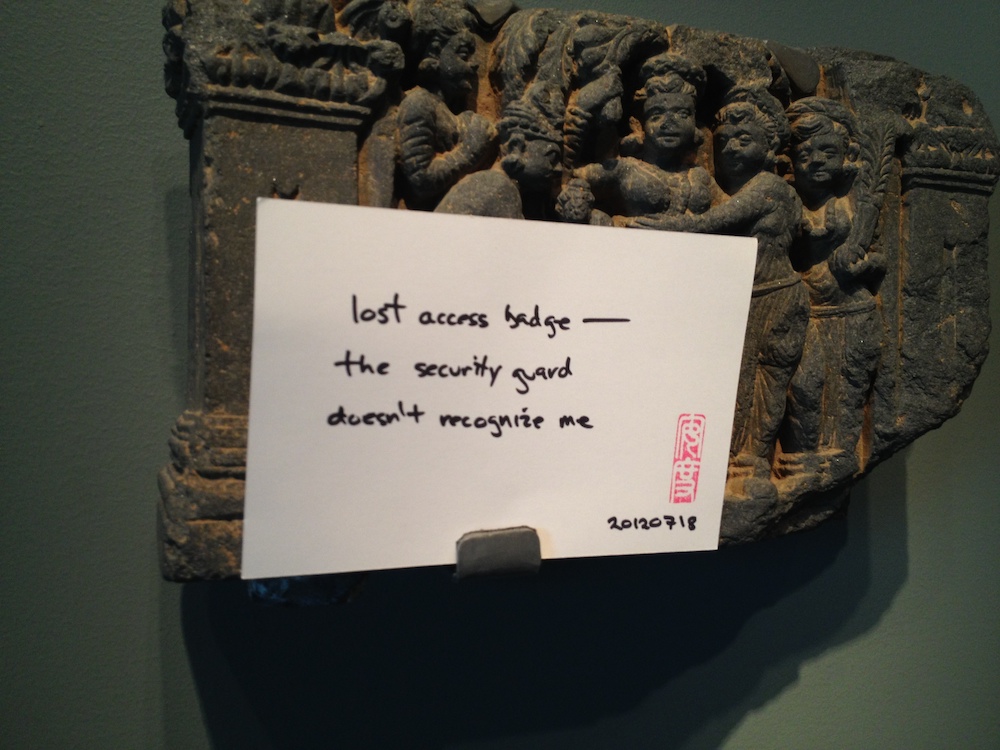 lost access badge —
the security guard
doesn't recognize me
20120718